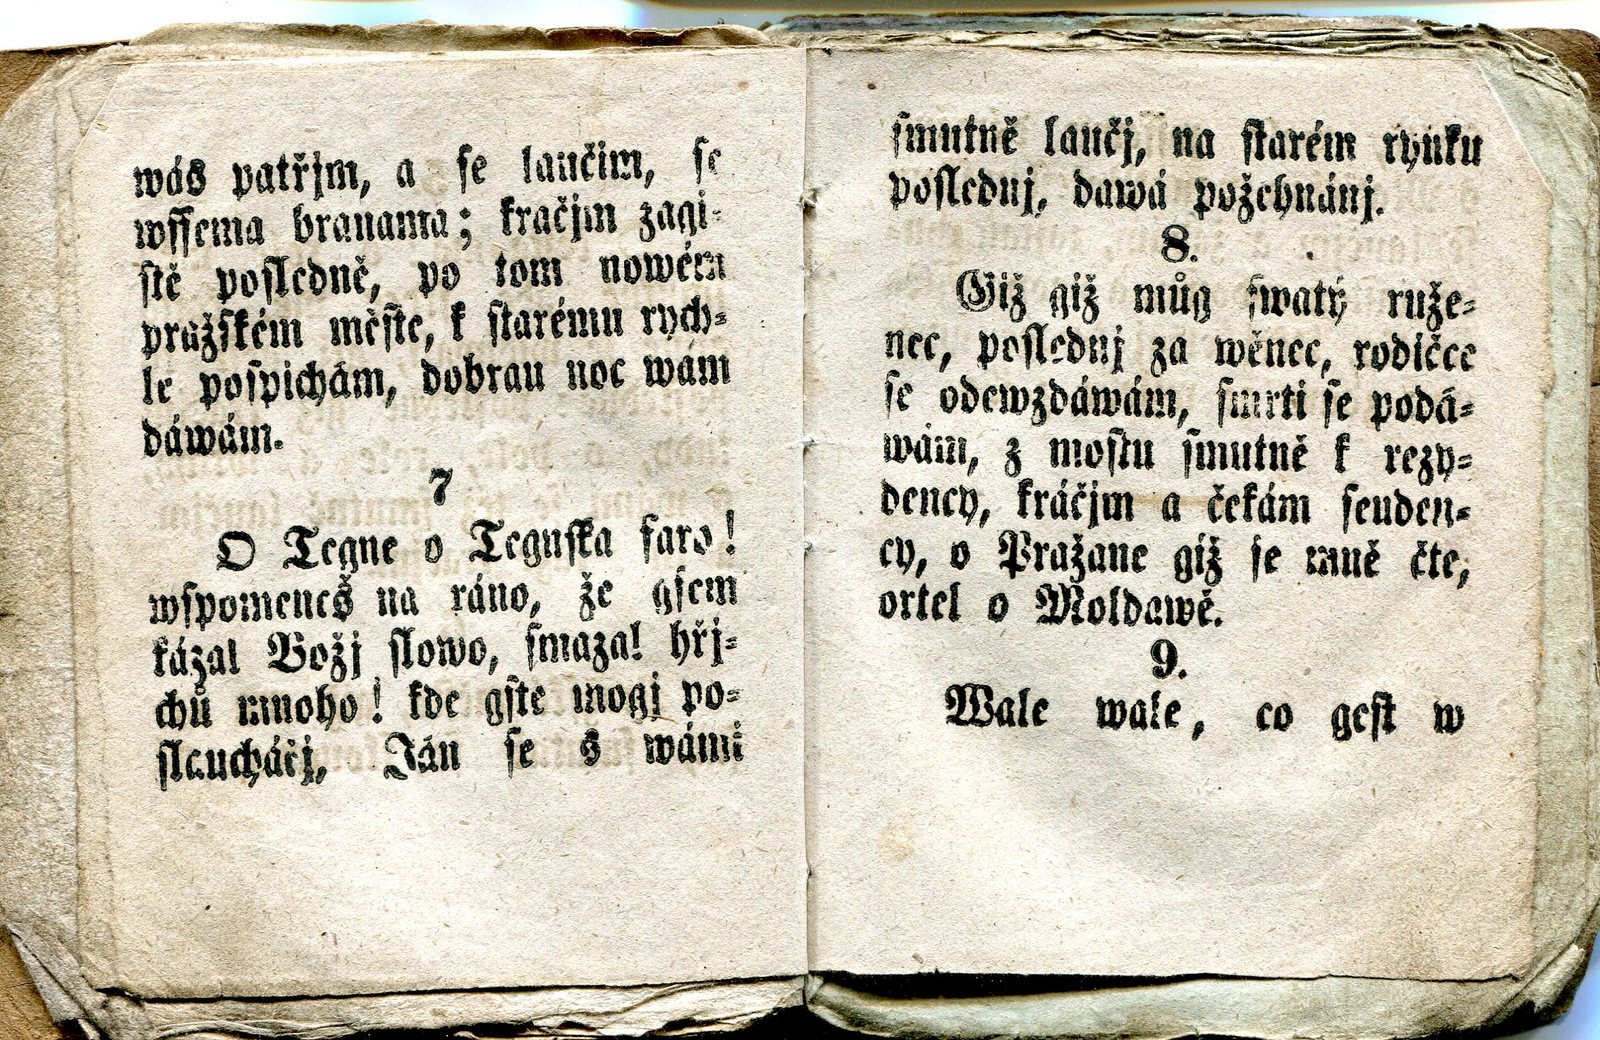 wás patřjm, a se laučim, se
wssema branama; kračjm zagi-
stě posledně, po tom nowém
pražském měste, k starému rych-
le pospichám, dobrau noc wám
dáwám.
7
O Tegne o Tegnska faro!
wspomeneš na ráno, že gsem
kázal Božj slowo, smazal hřj-
chů mnoho! kde gste mogj po-
slauchářj, Ján se s wámi
smutně laučj, na starém rynku
poslednj, dawá požehnánj.
8.
Giž giž můg swatý ruže-
nec, poslednj za wěnec, rodičce
se odewzdáwám, smrti se podá-
wám, z mostu smutně k rezy-
dency, kráčjm a čekám senden-
cy, o Pražane giž se mně čte,
ortel o Moldawě.
9.
Wale wale, co gest w